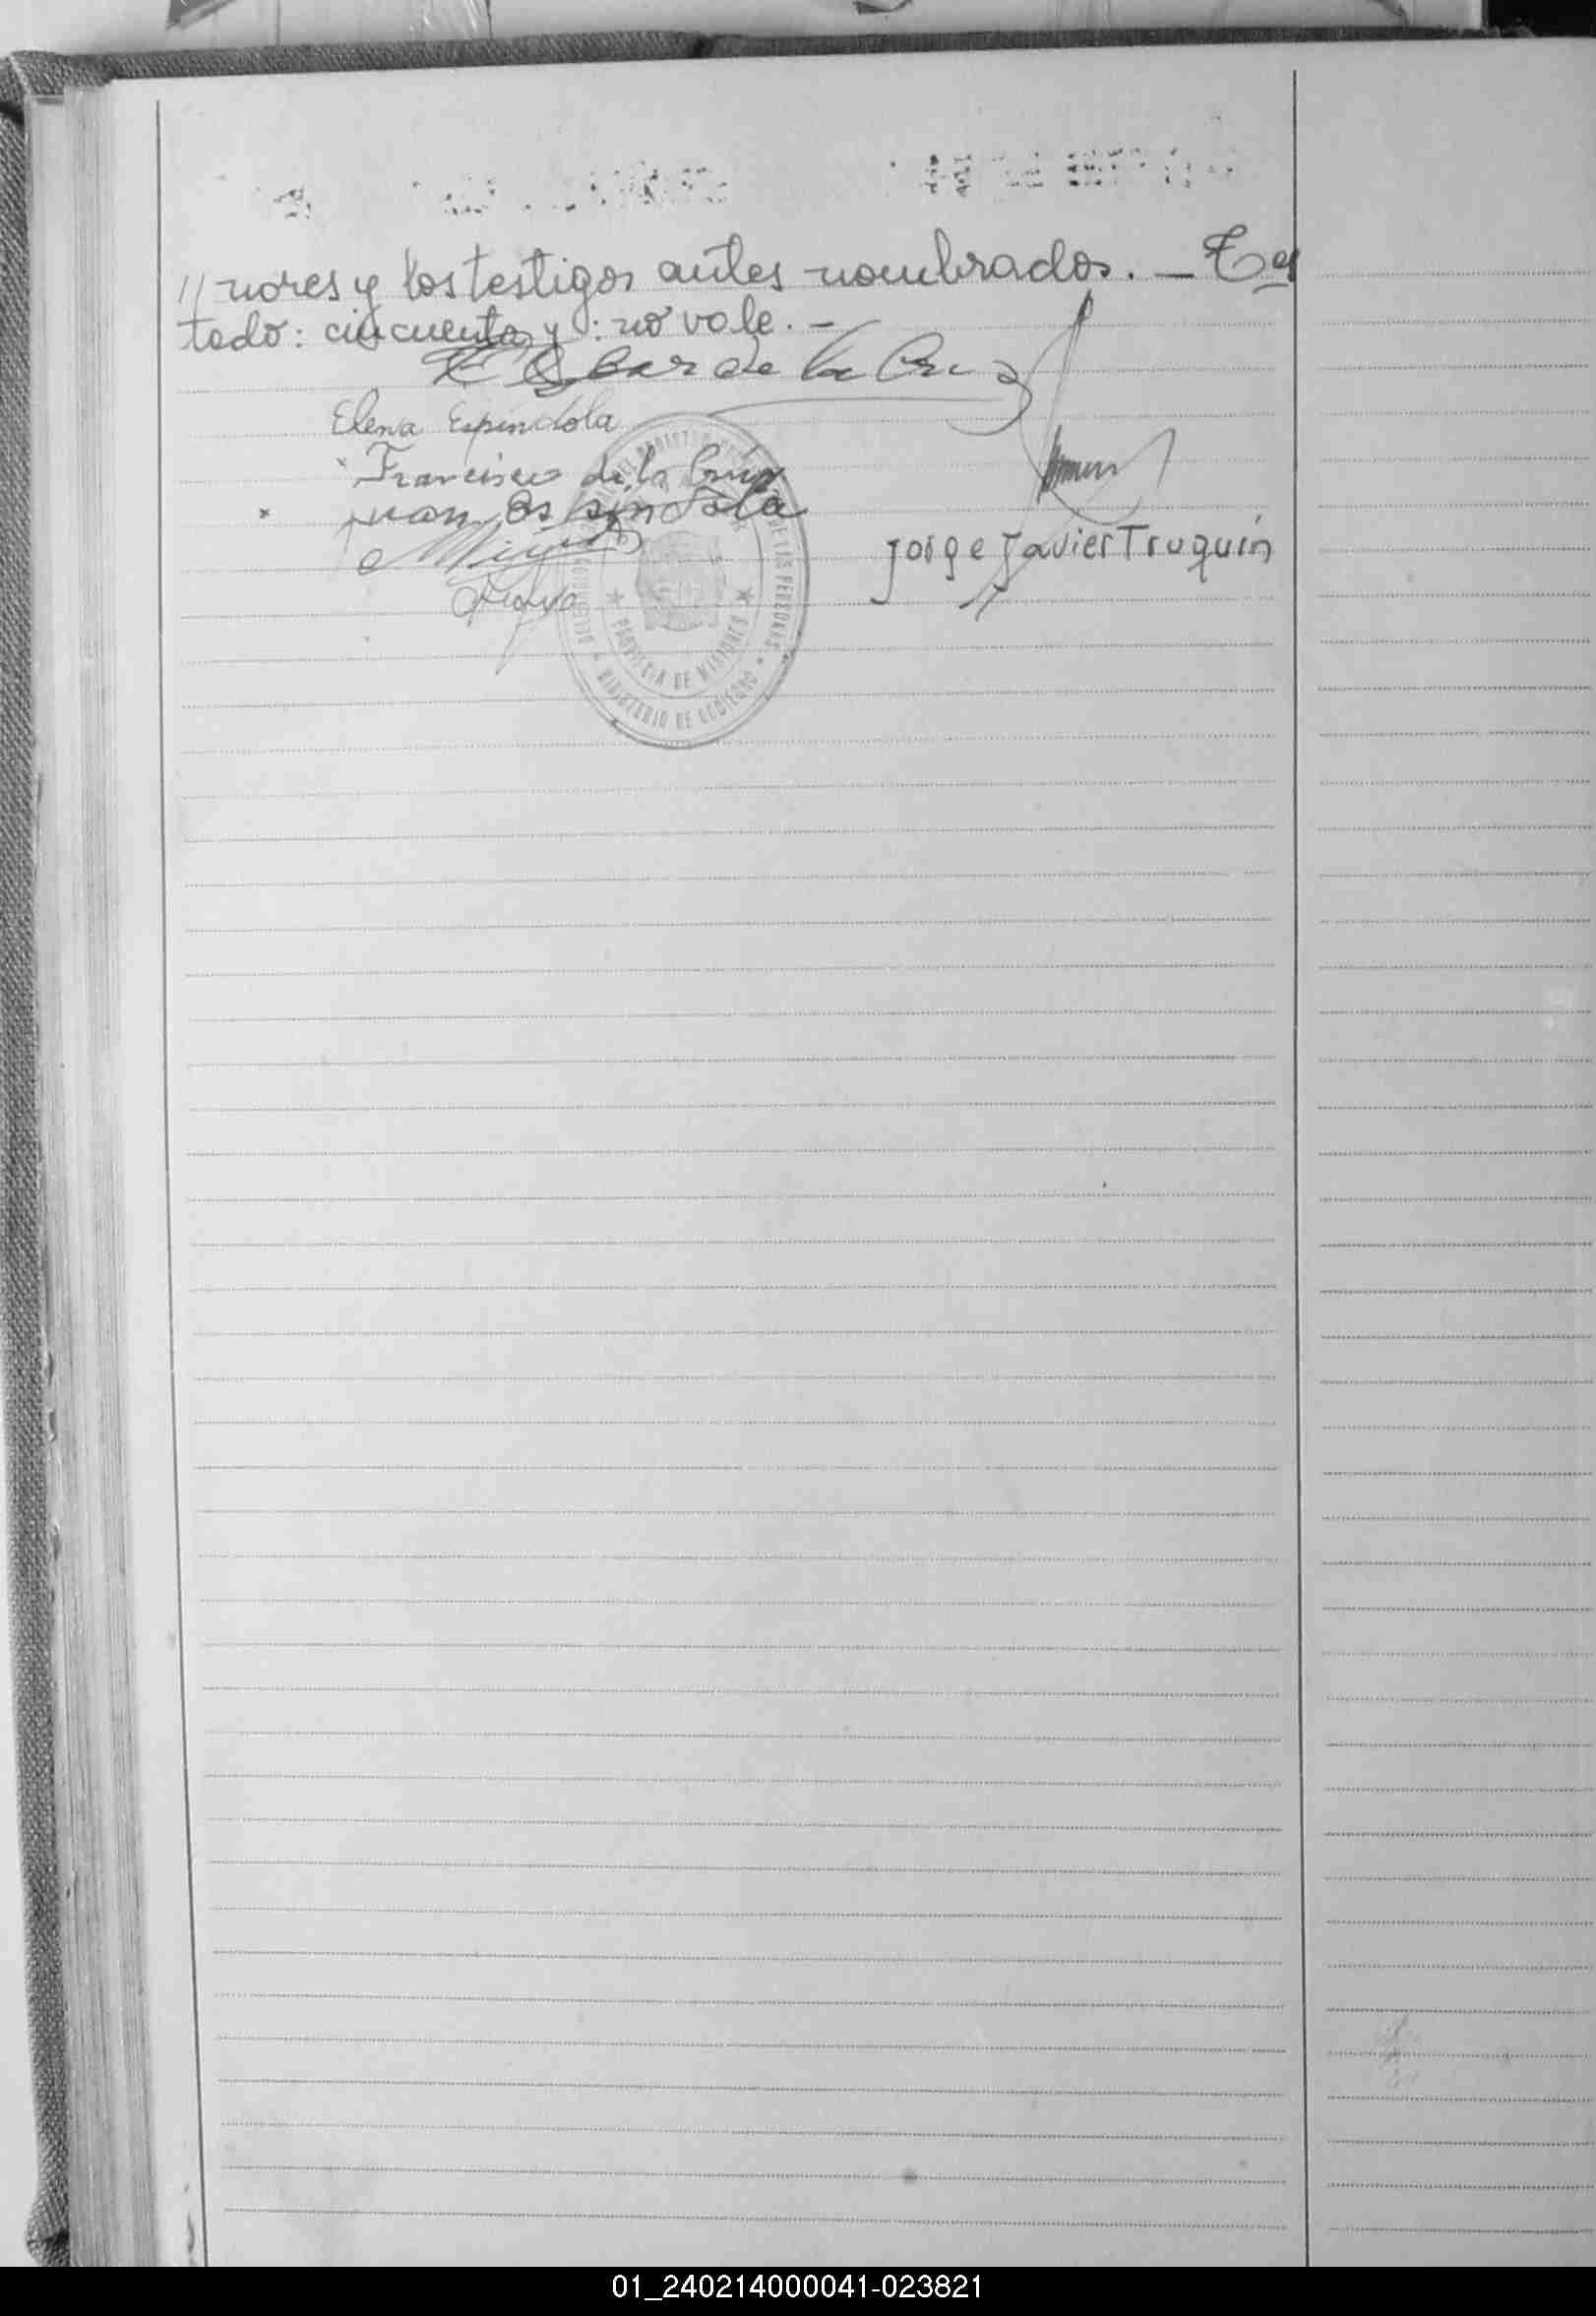 // nores y los testigos antes nombrados. — Tes
tado: cincuenta y: no vale. —
Oscar de la Cruz
Elena Espindola
Francisco de la Cruz
Juan Espindola
Jorge Javier Truquin
REGISTRO DE LAS PERSONAS
PROVINCIA DE MISIONES
MINISTERIO DE GOBIERNO
01_240214000041-023821